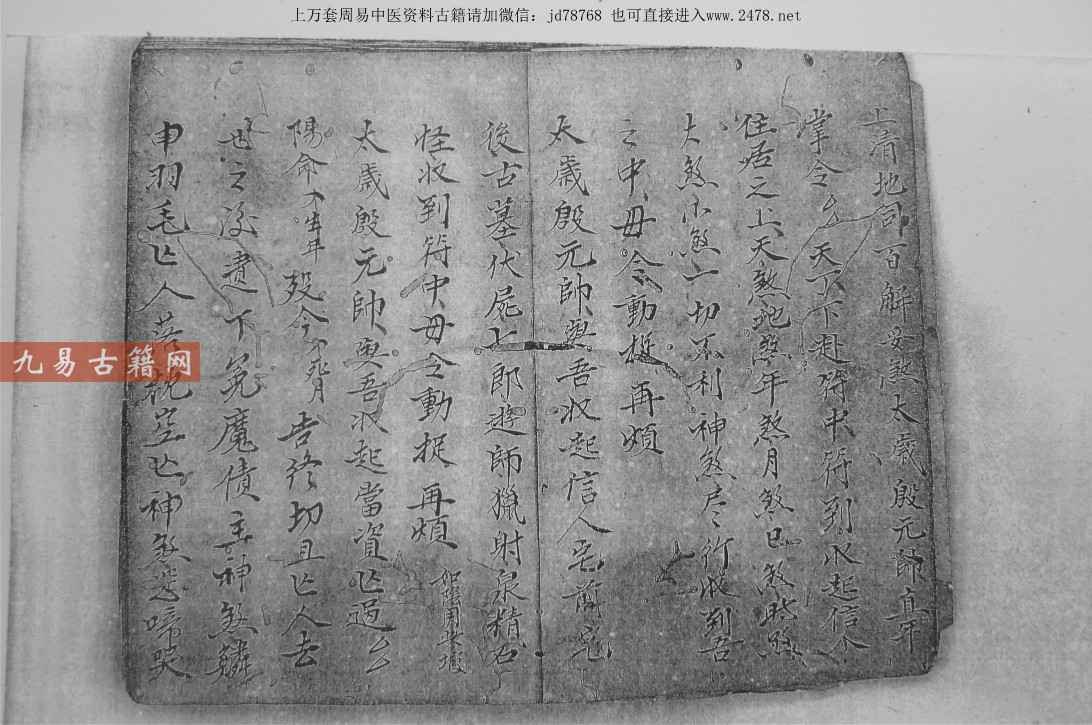 上万套周易中医资料古籍请加微信：jd78768 也可直接进入www.2478.net
上清地司百解安煞太歲殷元帥直年
掌令 天下下赴符中符到收起信人
住居之上天煞地煞年煞月煞日煞時煞
大煞小煞一切不利神煞尽行收到吾
之中毋令動捉再煩
太歲殷元帥與吾收起信人宅前
後古墓伏屍 郎遊師獵射泉精
怪收到符中毋令動捉再煩
太歲殷元帥與吾收起當資亡過
陽命 年 歿今 月 告終切且亡人去
世之後遺下冤魔債主神煞
申羽毛亡人 神煞 啼哭
九易古籍网